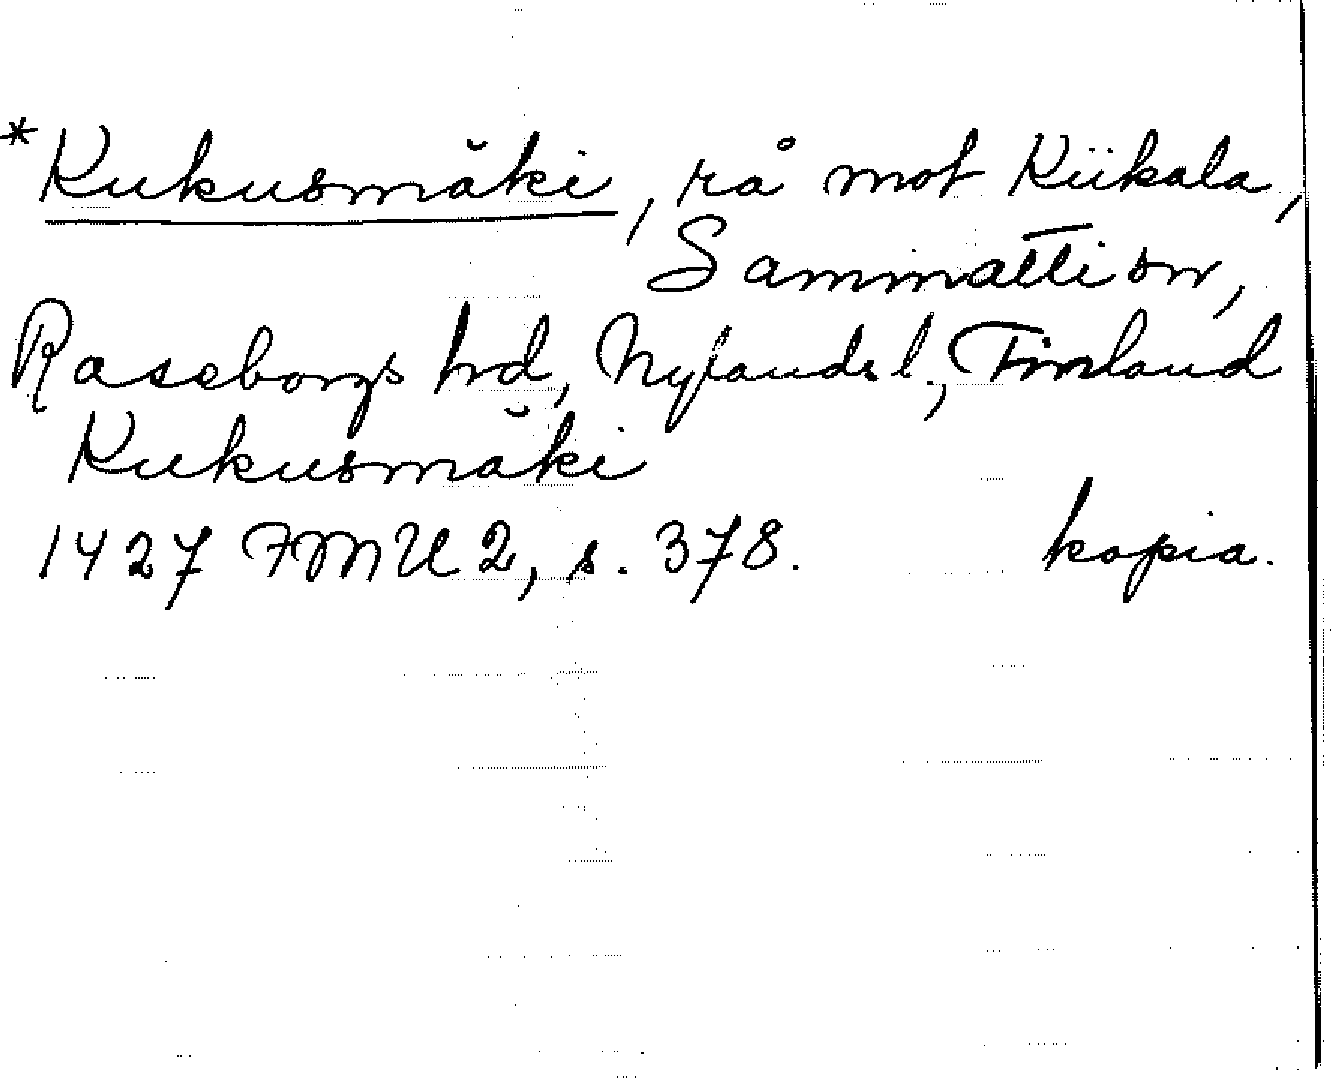 *Kukusmäki, rå mot Kiikala,
Sammatti sn,
Raseborgs hd, Nylands l, Finland
Kukusmäki
1427 FMU 2, s. 378. kopia.